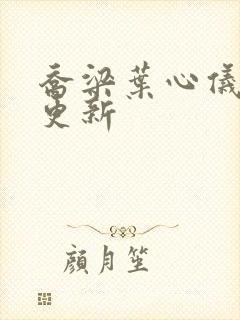 喬梁葉心儀
更新
顏月笙